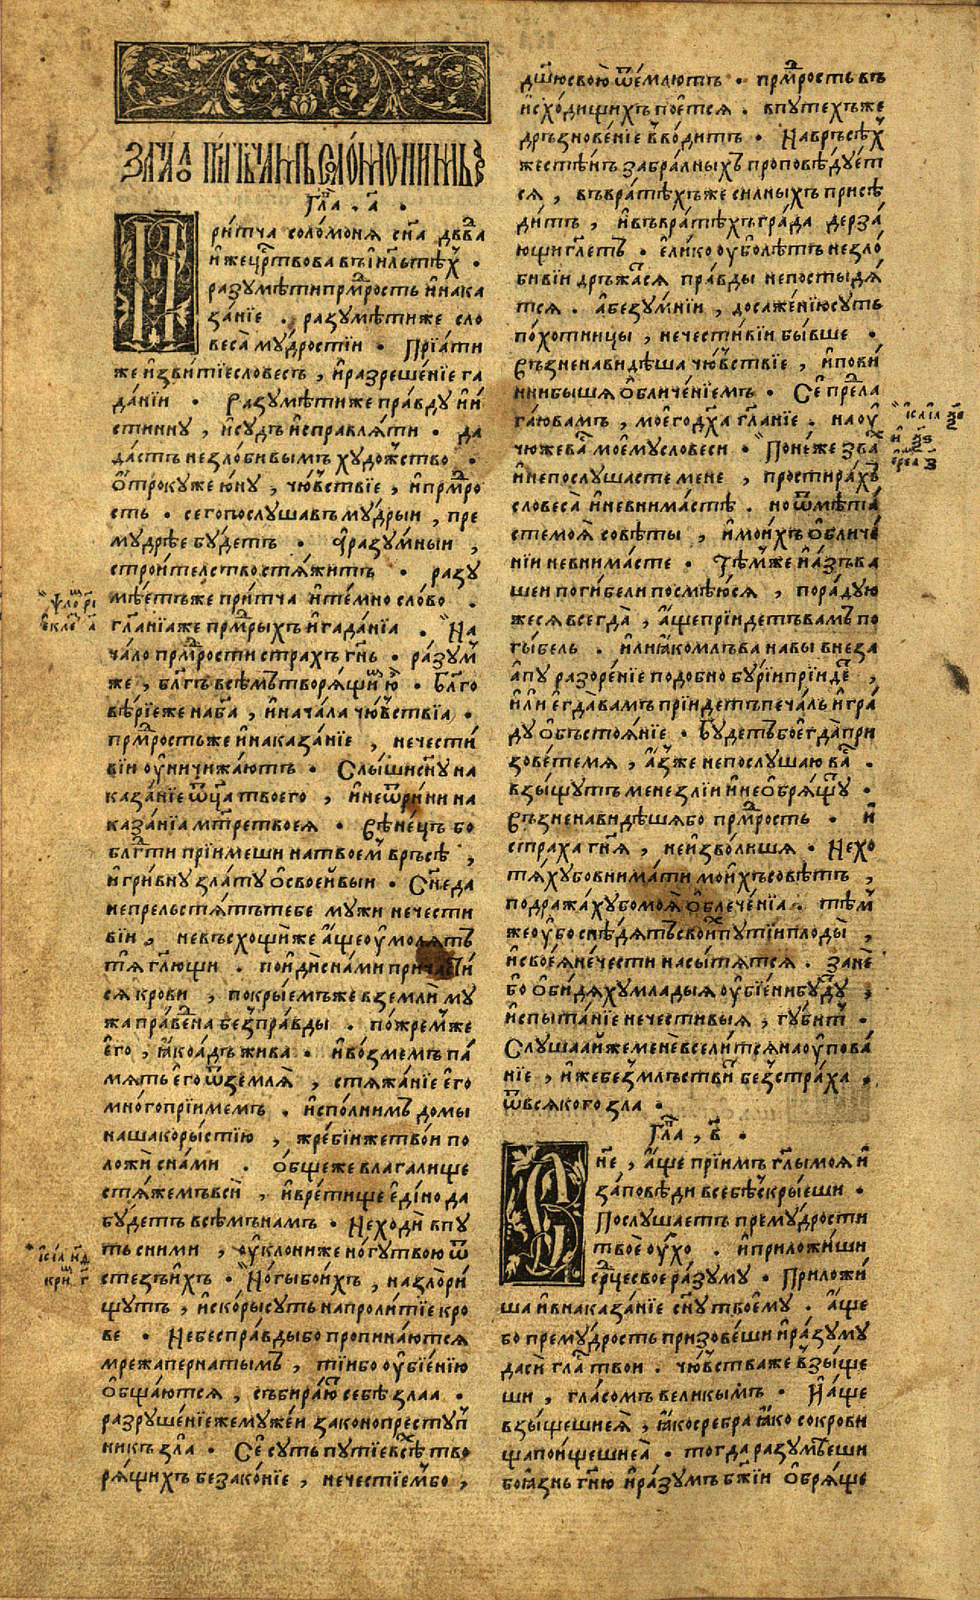 глⷡ҇а . а҃ .
При́тча соло́моня сн҃а дв҃да
и́же црⷭ҇твова въ і҆и҃лътѣⷯ .
разꙋмѣ́ти прⷨ҇рость и҆ нака
за́нїе . разꙋмѣ́ти же сло
веса̀ мꙋ́дростїи . Прїѧ́ти
же и҆зви́тїе словесъ , и҆ разреше́нїе га
да́нїи . Разꙋмѣ́ти же пра́вдꙋ и҆́и
стиннꙋ , и҆ сꙋ́дъ и҆справлѧ́ти . да
да́стъ незло́бивымъ хꙋдо́жство .
ѻ҆́трокꙋ же ю҆́нꙋ , чю́вⷭ҇твїе , и҆ прⷨ҇ро
сть . сего послꙋ́шавъ мꙋ́дрыи , пре
мꙋдрѣе бꙋ́детъ . а҆ разꙋ́мныи ,
строи́телство стѧ́житъ . разꙋ
мѣ́етъ же при́тча и҆ те́мно сло́во .
гл҃анїѧ же прⷨ҇рыхъ и҆ гада́нїа . На
ча́ло прⷨ҇рости страхъ гн҃ь . ра́зꙋⷨ
же , бл҃гъ всѣ́мъ творѧ́щиⷨ ю҆̀ . Бл҃го
вѣ́рїе же на бг҃а , и҆ нача́ла чю́вⷭ҇твїа .
прⷨ҇рость же и҆ наказа́нїе , нечести́
вїи ᲂу҆ничижа́ютъ . Слы́ши сн҃ꙋ на
каза́нїе ѿц҃а твоего , и҆ не ѿри́ни на
каза́нїа мт҃ре твоеѧ . Вѣне́цъ бо
блгⷣ҇ти прїи́меши на твоеⷨ връсѣ̀ ,
и҆ гри́внꙋ зла́тꙋ ѻ҆ свое́и вы́и . Сн҃е да
непрельстѧ́тъ тебе мꙋ́жи нечести
вїи , невъсхощи́ же а҆́ще ᲂу҆мо́лѧтъ
тѧ̀ гл҃ющи . поидѝ сна́ми прича́сти́
сѧ кро́ви , покры́емъ же вземлѝ мꙋ
жа пра́веⷣна безпра́вды . по́жреⷨ же
е҆го̀ , ꙗ҆́ко а́дъ жи́ва . и҆ во́змемъ па́
мѧть е҆го ѿ землѧ̀ , стѧжа́нїе е҆го
мно́го прїи́мемъ . и҆спо́лнимъ до́мы
на́ша коры́стїю , жре́бїи же тво́и по
ложѝ сна́ми . ѻ҆́бще же влага́лище
стѧ́жемъ всѝ , и҆ вре́тище е҆ди́но да
бꙋ́детъ всѣ́мъ на́мъ . Неходѝ впꙋ
ть сни́ми , ᲂу҆клони́ же но́гꙋ твою̀ ѿ
стезь и҆́хъ . Но́гы бо и҆́хъ , на зло̀ ри́
щꙋтъ , и҆ ско́ры сꙋть на проли́тїе кро
ве . Небеспра́вды бо пропина́ютсѧ
мре́жа перна́тымъ , ті́и бо ᲂу҆бїе́нїю
ѻ҆бща́ютсѧ , събира́ютⷤ себѣ̀ зла́а .
разрꙋше́нїе же мꙋже́и законопрестꙋп
никъ зла̀ . Се́и сꙋть пꙋтїе всѣⷯ тво
рѧ́щихъ безако́нїе , нечестїеⷨ бо ,
дш҃ю свою̀ ѿе́млютъ . прⷨ҇рость въ
и҆схо́дищихъ пое́тсѧ . впꙋте́хъ же
дръзнове́нїе вво́дитъ . На връсѣ́ⷯ
же стѣ́нъ забра́лныхъ проповѣ́дꙋет
сѧ , въ врⷶтѣ́хъ же си́лныхъ присѣ
ди́тъ , и҆ въ врⷶтѣ́хъ гра́да дерза́
ющи гл҃етъ . е҆ли́ко ᲂу҆́бо лѣ́тъ незло́
бивїи дръжа́тсѧ пра́вды непостыдѧ́
тсѧ . а҆ безꙋ́мнїи , досаже́нїю сꙋ́ть
по́хотницы , нечести́вїи бы́вше .
Възненави́дѣша чю́вⷭ҇твїе , и҆ пови́
нни бы́шѧ ѻ҆бличе́нїемъ . Се́ преⷣла
га́ю ва́мъ , моего̀ дх҃а гл҃анїе . наᲂу҆
чю́ же ва́съ мое́мꙋ словеси . Поне́же зва́хъ
и҆ непослꙋшасте менѐ , простира́хъ
словеса̀ и҆ невнима́стѣ . но ѿмѣта́
сте моѧ̀ совѣ́ты , и҆ мои́хъ ѻ҆бличе́
нїи невнима́сте . Тѣ́мже и҆ а́зъ ва
шеи поги́бели посмѣю́сѧ , пора́дꙋю
жесѧ всегда̀ , а҆́ще прїи́детъ ва́мъ по
ги́бель . и҆ли ꙗ҆́ко млъва на вы̀ внеза
а́пꙋ разоре́нїе подо́бно бꙋ́ри прїи́деⷮ ,
и҆́ли е҆гда̀ ва́мъ прїи́детъ печа́ль и҆ гра́
дꙋ ѻ҆бъстоѧ́нїе . Бꙋ́детъ бо е҆гда̀ при
зове́те мѧ , а҆́зъ же непослꙋ́шаю ва́съ .
взы́щꙋтъ менѐ злі́и и҆ не ѻ҆брѧ́щꙋ .
Възненави́дѣшѧ бо прⷨ҇рость . и҆
стра́ха гн҃ѧ , неи҆зво́лишѧ . Нехо
тѧ́хꙋ бо внима́ти мои́хъ совѣ́тъ ,
подража́хꙋ бо моѧ̀ ѻ҆бличе́нїа . тѣ́м
же ᲂу҆́бо снѣдѧ́тъ свои́хъ пꙋті́и плоды̀ ,
и҆ своеѧ̀ нече́сти насы́тѧтсѧ . зане́
бо ѻ҆би́дѧхꙋ мла́дыѧ ᲂу҆бїе́ни бꙋ́дꙋ ,
и҆спыта́нїе нечести́выѧ , гꙋби́тъ .
Слꙋша́аи же менѐ всели́тсѧ на ᲂу҆пова́
нїе , и҆́же безмлъстви̑ безстра́ха .
ѿ всѧ́кого зла .
Гл҃а , в҃ .
Сн҃е , а҆́ще прїи́мъ гл҃ы моѧ̀ и҆
за́повѣди все́бѣ скры́еши .
Послꙋ́шаетъ премꙋ́дрости
твоѐ ᲂу҆́хо . и҆ приложи́ши
се́рдце свое ра́зꙋмꙋ . Приложи́
ша и҆ в наказа́нїе сн҃ꙋ твоемꙋ . а҆́ще
бо премꙋ́дрость призове́ши и҆ ра́зꙋмꙋ
да́си гла́съ тво́и . чю́вⷭ҇тва же взы́ще
ши , гла́сомъ вели́кымъ . И҆ а҆́ще
взы́щеши еѧ̀ , ꙗ҆́ко сребра̀ ꙗ҆́ко сокрови
ща пои́щеши еѧ̀ . тогда̀ разꙋмѣ́еши
боѧ́знь гн҃ю и҆ ра́зꙋмъ бж҃їи ѻ҆брѧ́ще